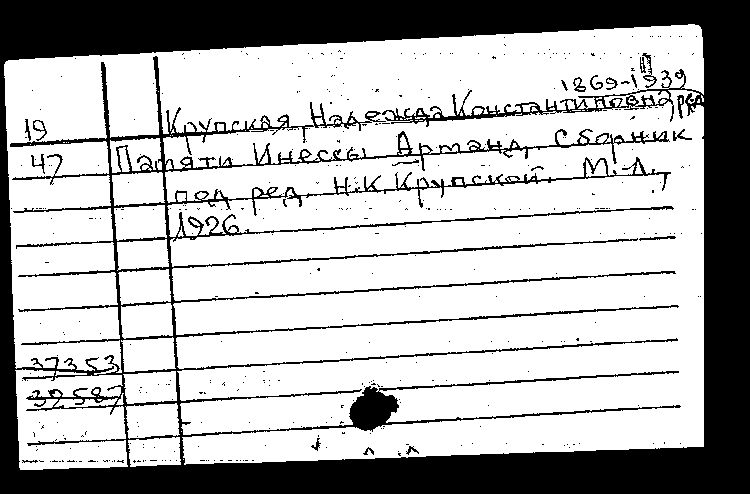 1869-1939
19 Крупская, Надежда Константиновна, ред.
47 Памяти Инессы Арманд. Сборник
под ред. Н.К. Крупской. М.-Л.,
1926.
37353
39587